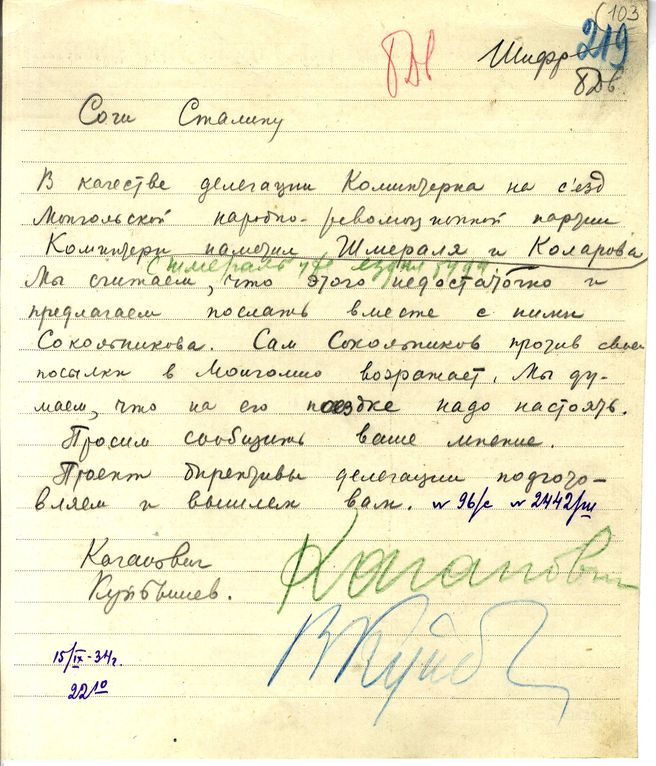 (103
219
Шифр
Сочи Сталину
В качестве делегации Коминтерна на с'езд
Монгольской народно-революционной партии
Коминтерн наметил Шмераля и Коларова
(Шмераль уже ездил туда.
Мы считаем, что этого недостаточно и
предлагаем послать вместе с ними
Сокольникова. Сам Сокольников против своей
посылки в Монголию возражает. Мы ду-
маем, что на его поездке надо настоять.
Просим сообщить ваше мнение.
Проект директивы делегации подгото-
вляем и вышлем вам. № 96/с № 2442/ш
Каганович
Куйбышев.
Каганович
В Куйб
15/IX-34г
22 10